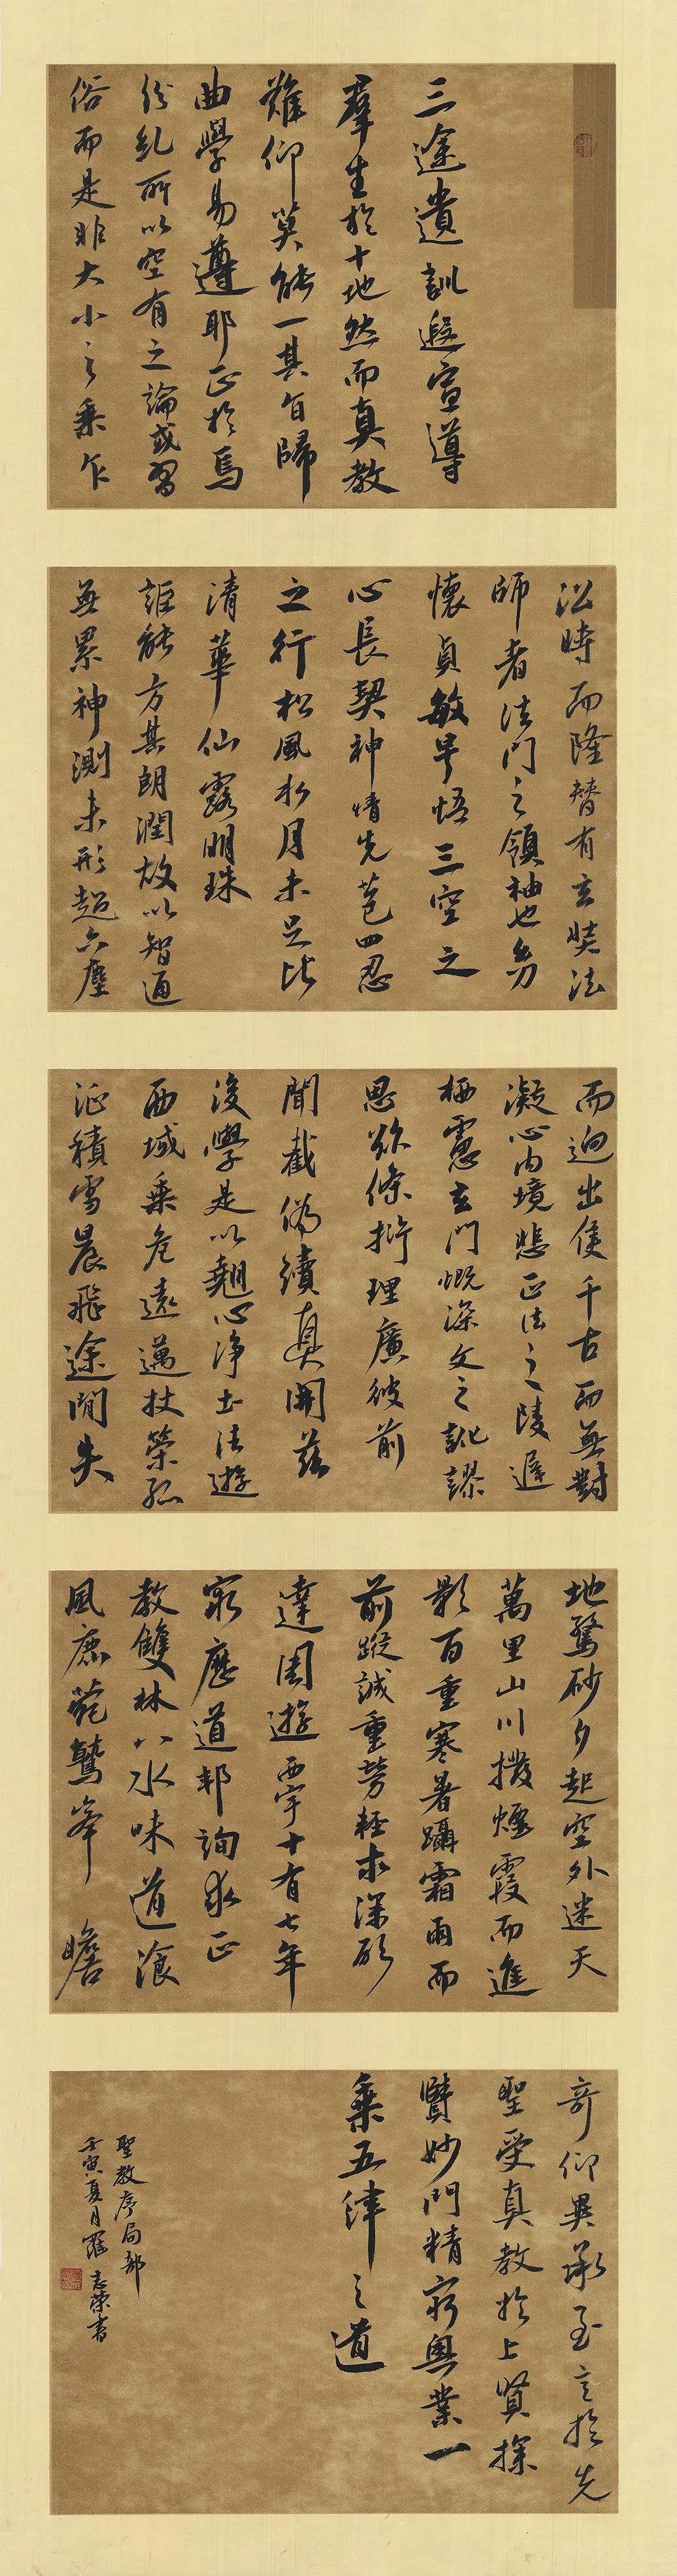 三途遺訓遐宣導
羣生於十地然而真教
難仰莫能一其旨歸
曲學易遵耶正於焉
紛糺所以空有之論或習
俗而是非大小之乘乍
沿時而隆替有玄奘法
師者法門之領袖也幼
懷貞敏早悟三空之
心長契神情先苞四忍
之行松風水月未足比
清華仙露明珠
詎能方其朗潤故以智通
無累神測未形超六塵
而迥出隻千古而無對
凝心內境悲正法之陵遲
栖慮玄門慨深文之訛謬
思欲條析理廣彼前
聞截偽續真開茲
後學是以翹心淨土法遊
西域乘危遠邁杖策孤
征積雪晨飛途間失
地驚砂夕起空外迷天
萬里山川撥煙霞而進
影百重寒暑躡霜雨而
前蹤誠重勞輕求深願
達周遊西宇十有七年
窮歷道邦詢求正
教雙林八水味道湌
風鹿菀鷲峯瞻
奇仰異承至言於先
聖受真教於上賢探
賾妙門精窮奧業一
乘五律之道
聖教序局部
壬寅夏月羅志榮書